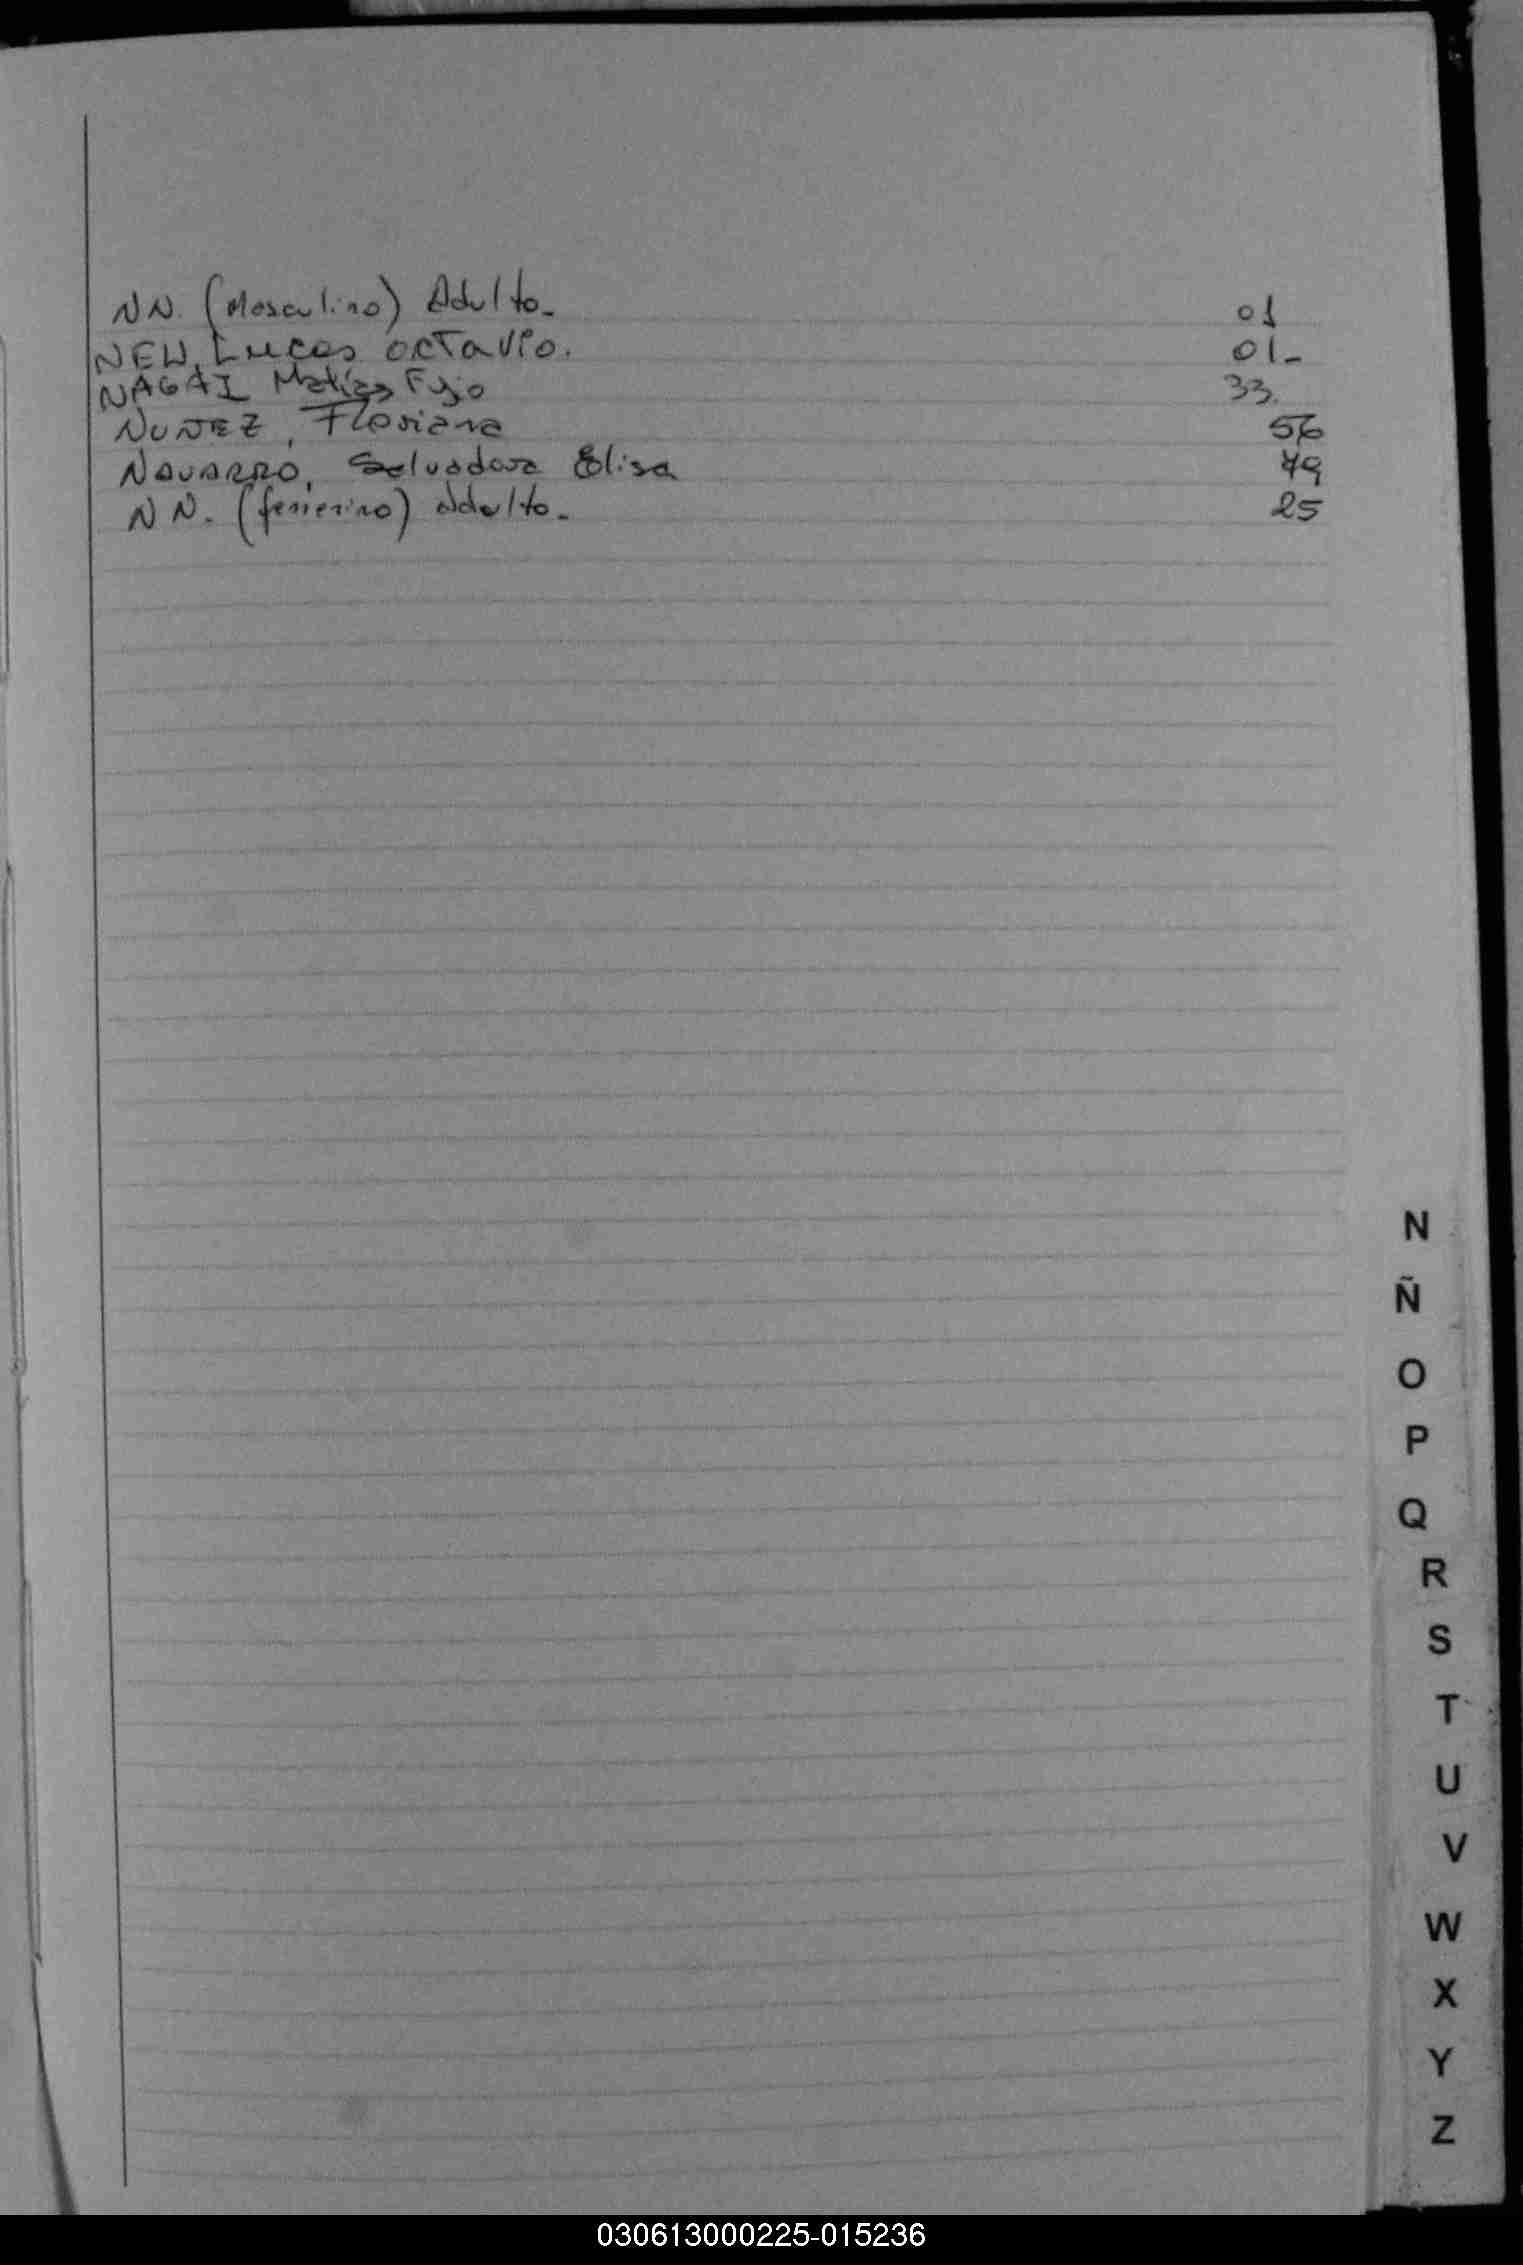 NN. (Masculino) Adulto. 01
NEW, Lucas Octavio. 01-
NAGAI Matías Fujio 33.
NUÑEZ, Floriana 56
NAVARRO, Salvadora Elisa 79
NN. (femenino) adulto. 25
N
Ñ
O
P
Q
R
S
T
U
V
W
X
Y
Z
030613000225-015236